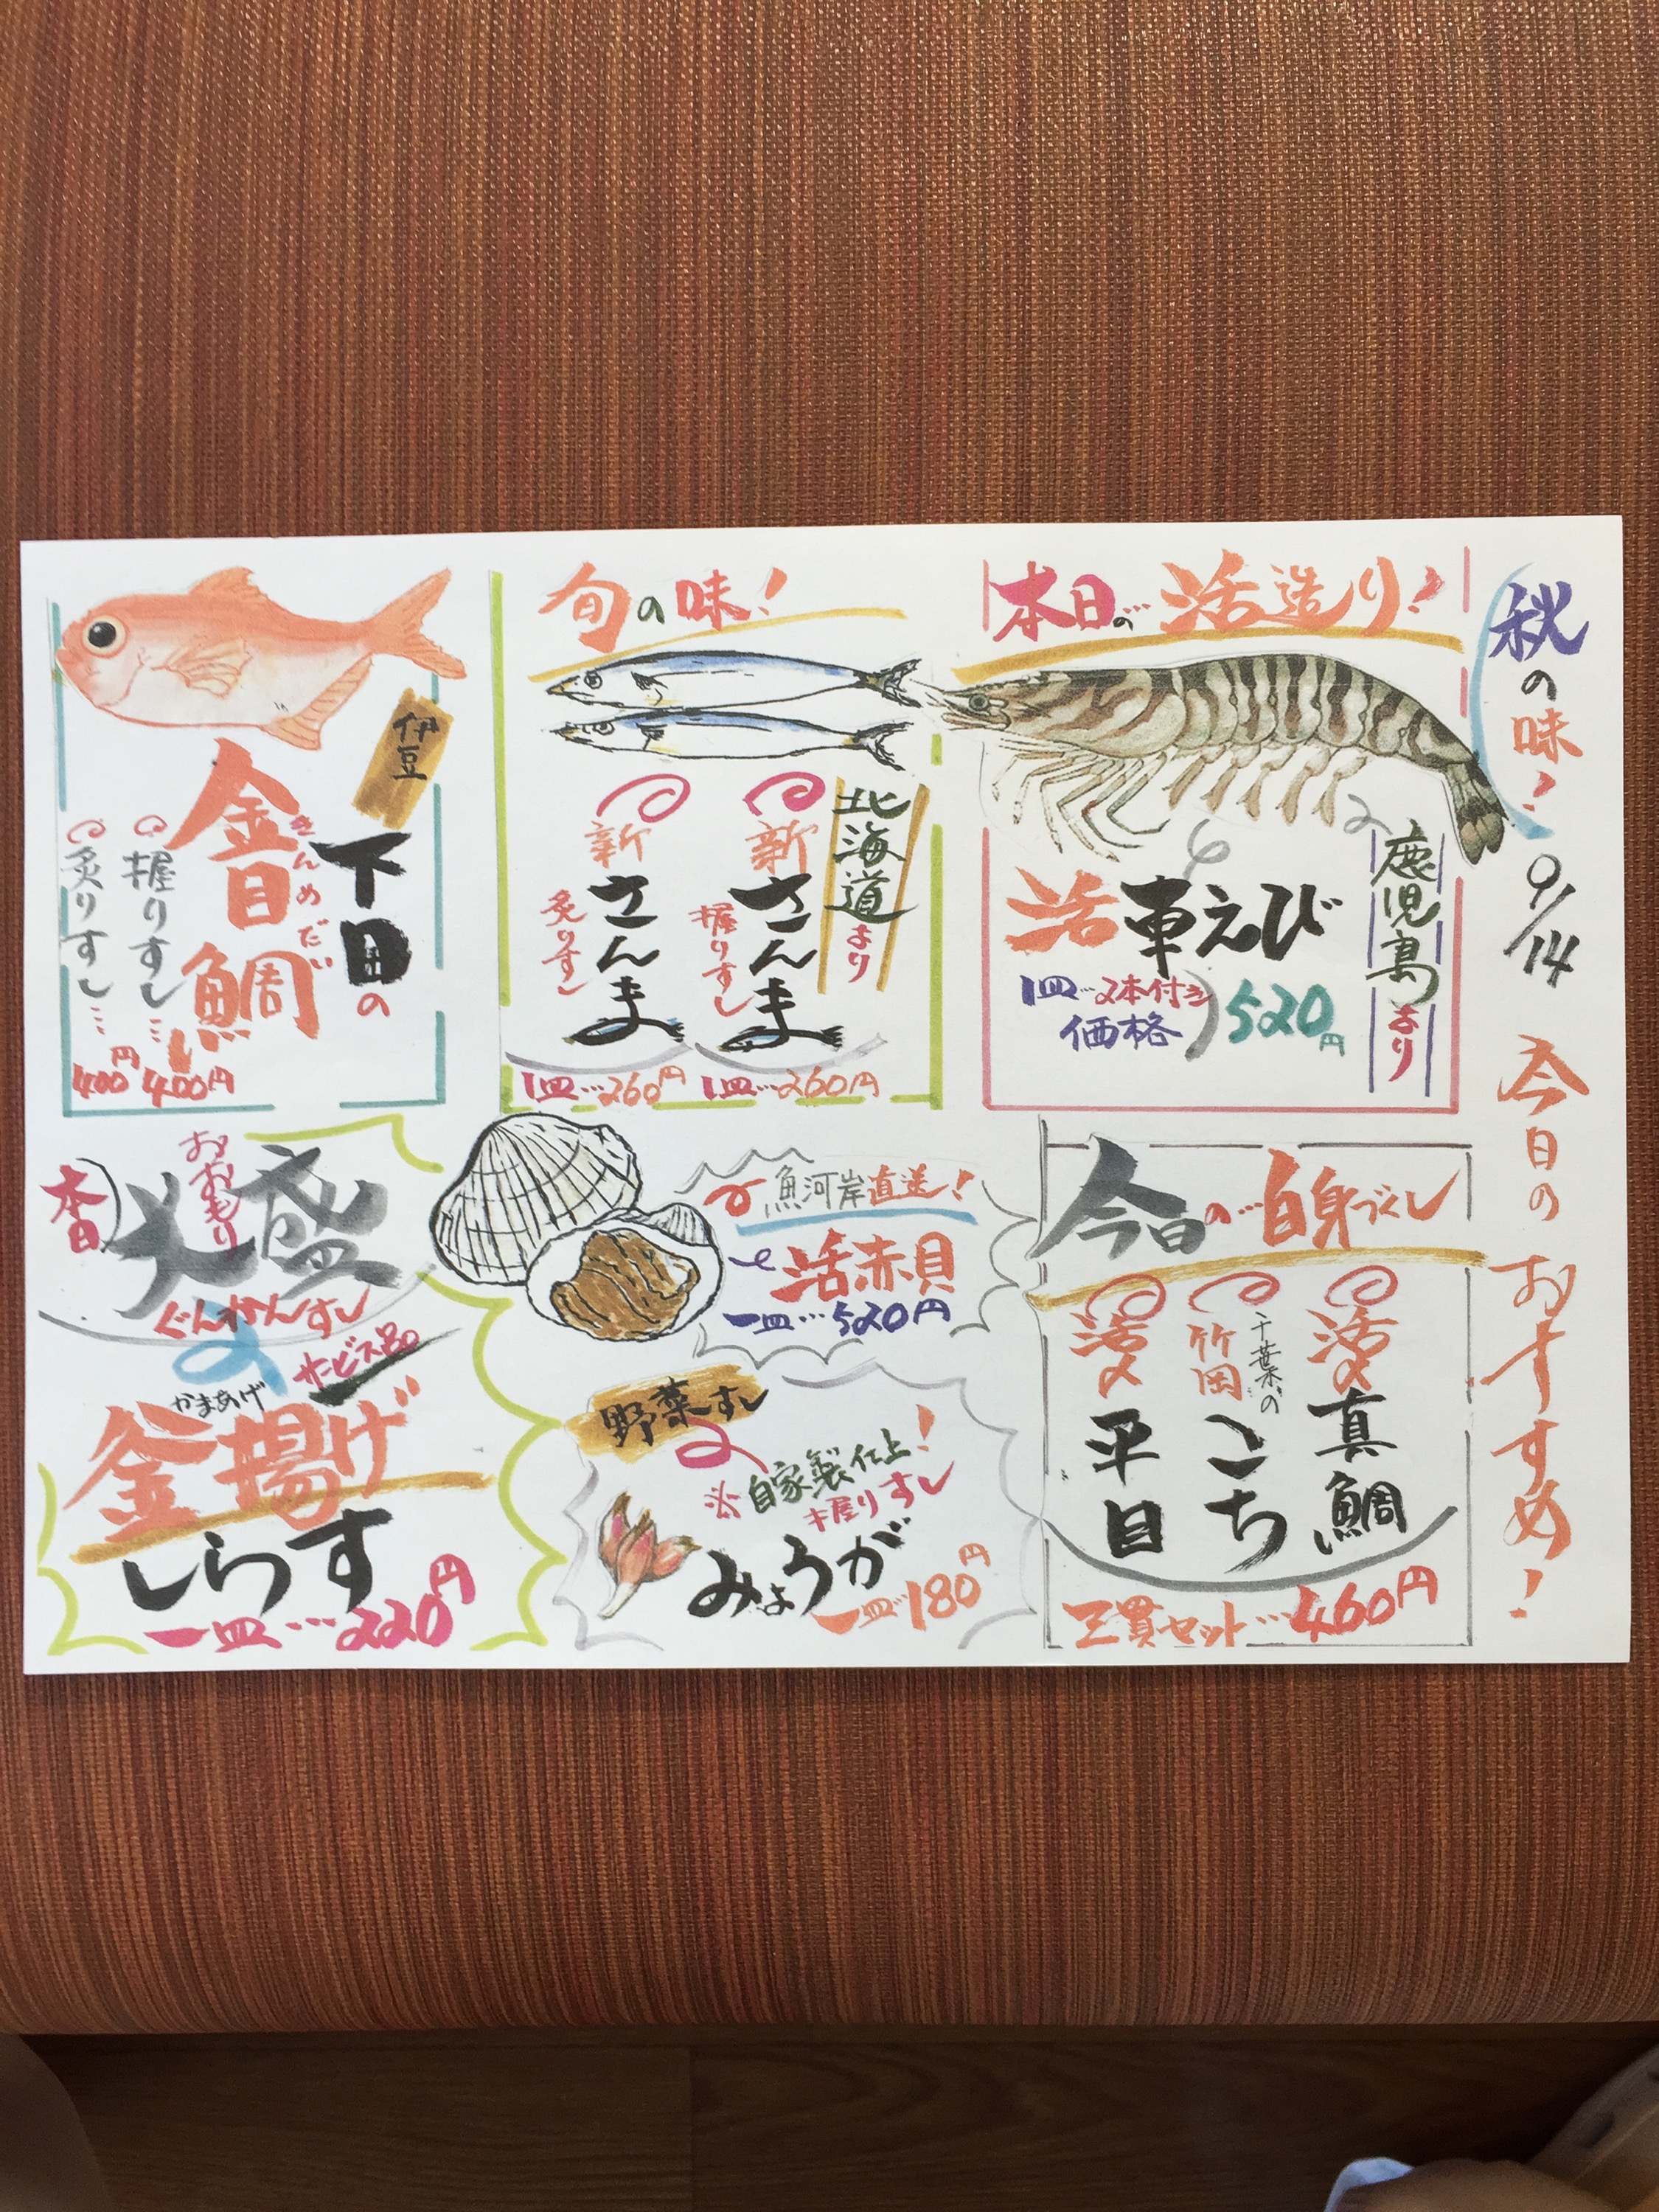 秋の味!
9/14
今日のおすすめ!
本日の活造り!
鹿児島より
活車えび
1皿…2本付き
価格
520円
旬の味!
北海道より
新さんま
握りすし
1皿…260円
新さんま
炙りすし
1皿…260円
伊豆
下田の
金目鯛
きんめだい
握りすし…400円
炙りすし…400円
今日の…白身づくし
活〆真鯛
千葉の
竹岡
こち
活〆平目
三貫セット…460円
魚河岸直送!
活赤貝
一皿…520円
野菜すし
※自家製仕上!
握りすし
みょうが
一皿…180円
本日
おおもり
大盛
ぐんかんすし
サービス品
かまあげ
釜揚げ
しらす
一皿…220円